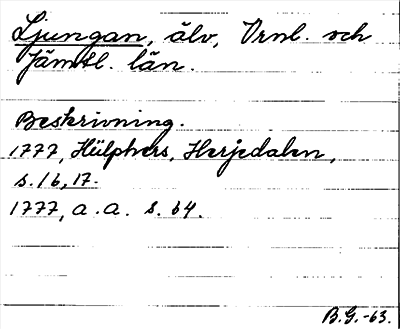 Ljungan, älv, Vrnl. och
Jämtl. län.
Beskrivning.
1777, Hülphers, Herjedalen,
s. 16, 17.
1777, a. a. s. 64.
B.G.-63.